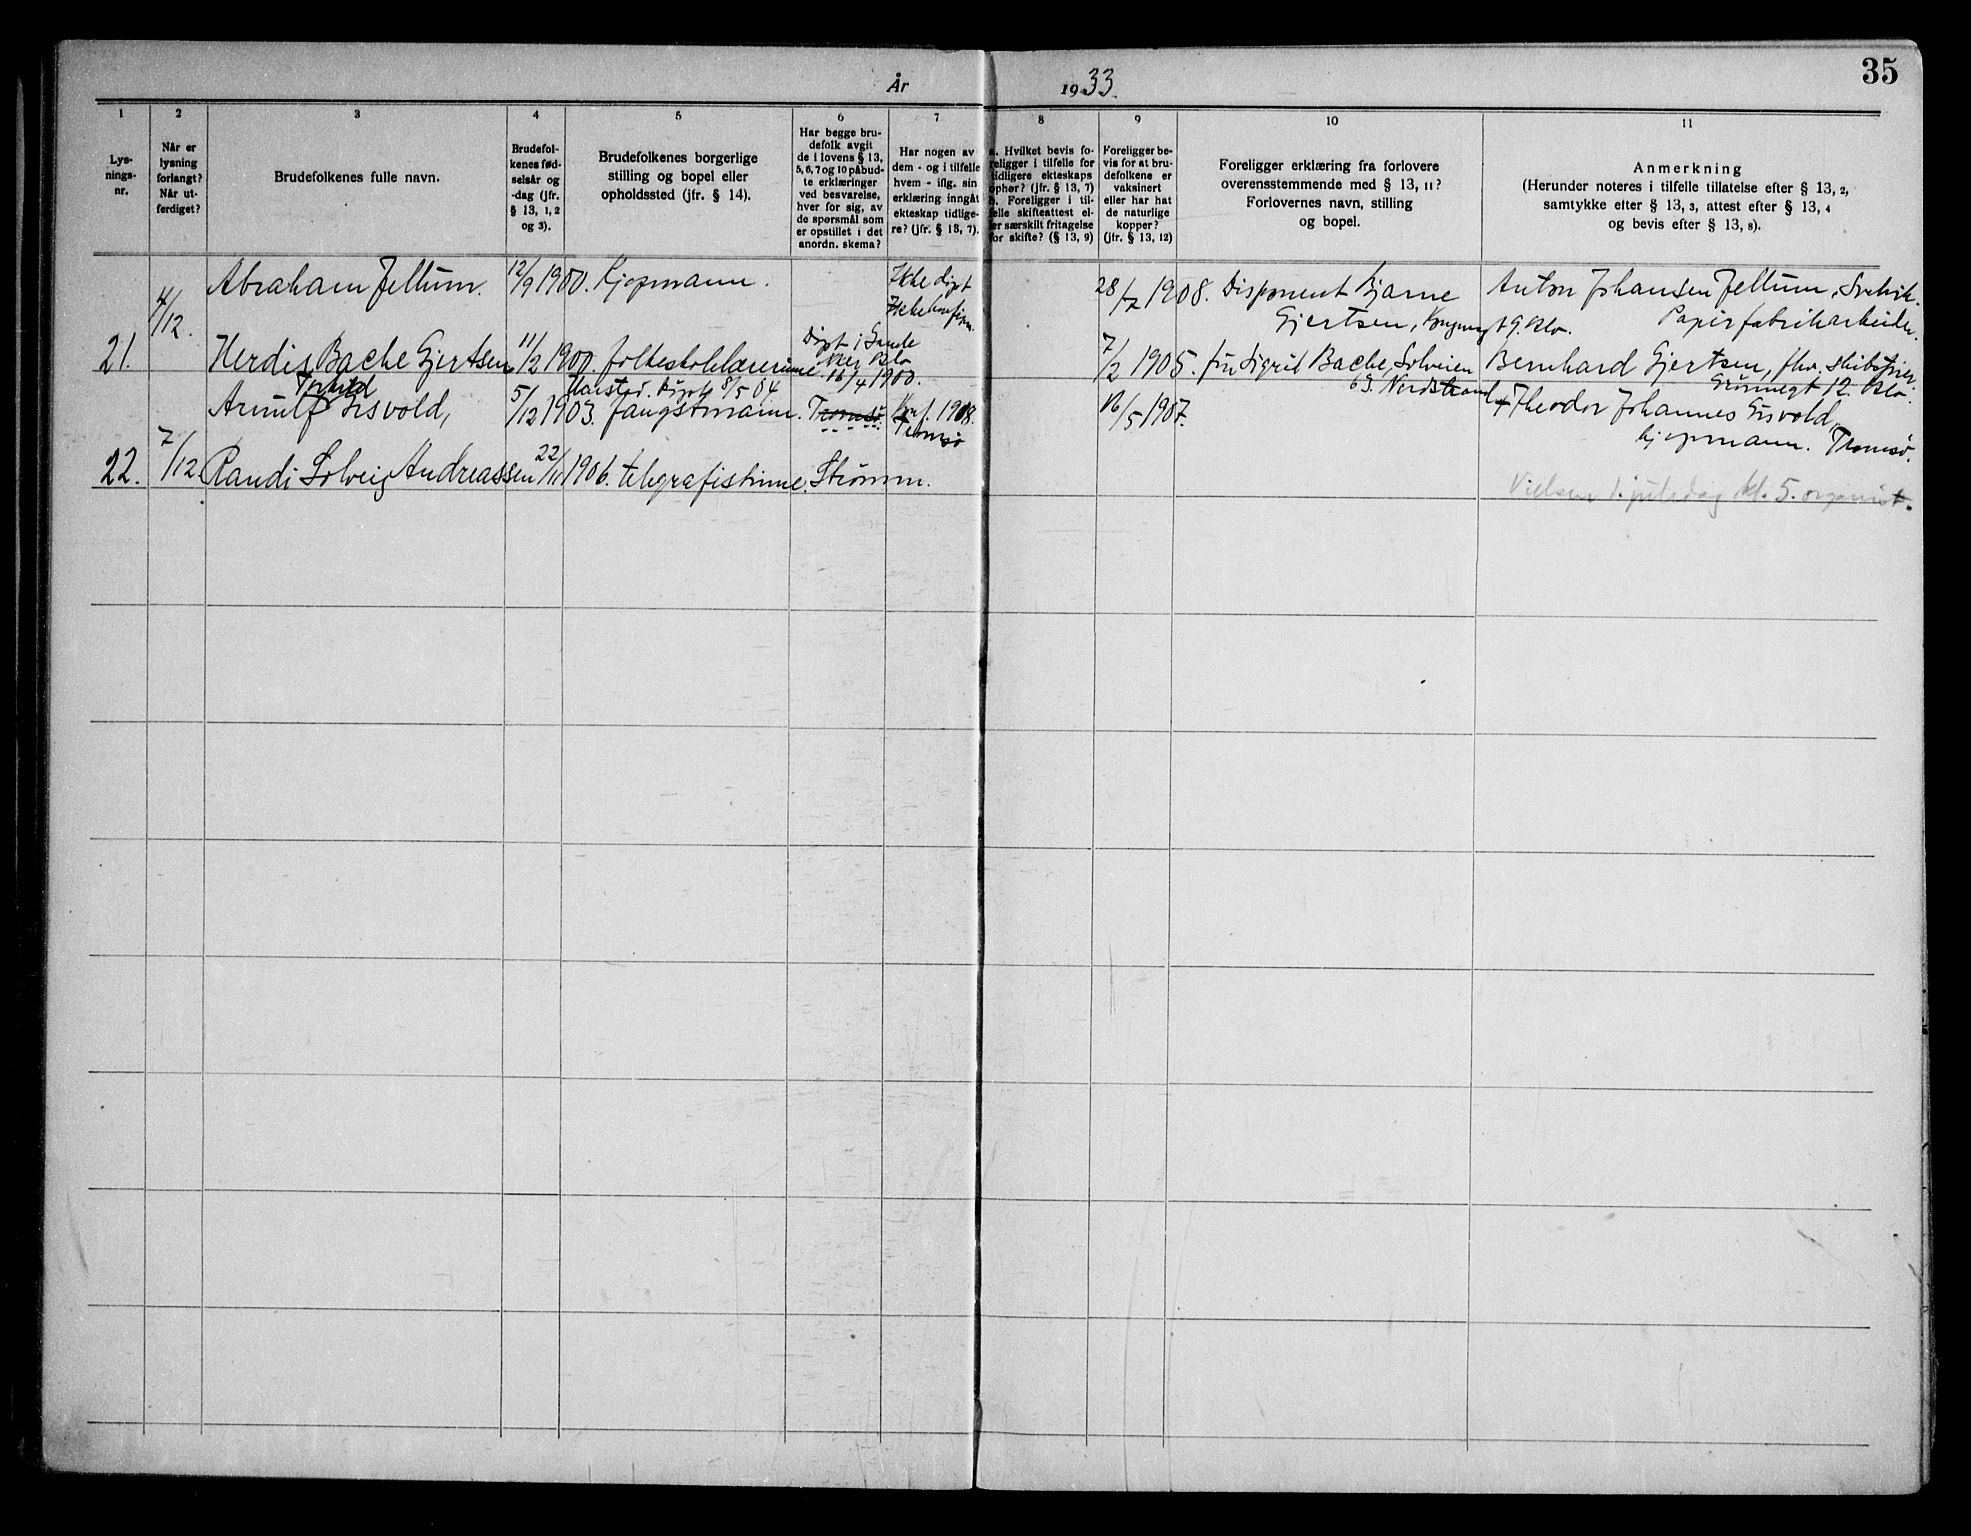 35
År 1933.
1 2 3 4 5 6 7 8 9 10 11
Lys-
nings-
nr.
Når er
lysning
forlangt?
Når ut-
ferdiget?
Brudefolkenes fulle navn.
Brudefol-
kenes fød-
selsår og
-dag (jfr.
§ 13, 1, 2
og 3).
Brudefolkenes borgerlige
stilling og bopel eller
opholdssted (jfr. § 14).
Har begge bru-
defolk avgit
de i lovens § 13,
5, 6, 7 og 10 påbud-
te erklæringer
ved besvarelse,
hver for sig, av
de spørsmål som
er opstillet i det
anordn. skema?
Har nogen av
dem - og i tilfelle
hvem - iflg. sin
erklæring inngåt
ekteskap tidlige-
re? (jfr. § 13, 7).
a. Hvilket bevis fo-
religger i tilfelle for
tidligere ekteskaps
ophør? (jfr. § 13, 7)
b. Foreligger i til-
felle skifteattest el-
ler særskilt fritagelse
for skifte? (§ 13, 9)
Foreligger be-
vis for at bru-
defolkene er
vaksinert
eller har hat
de naturlige
kopper?
(jfr. § 13, 12)
Foreligger erklæring fra forlovere
overensstemmende med § 13, 11?
Forlovernes navn, stilling
og bopel.
Anmerkning
(Herunder noteres i tilfelle tillatelse efter § 13, 2,
samtykke efter § 13, 3, attest efter § 13, 4
og bevis efter § 13, 8).
4/12.
Abraham Jellum.
12/9 1900.
Kjøpmann.
Ikke døpt
Ikke konfirm.
28/7 1908.
Disponent Bjarne
Gjertsen, 9. Oslo.
Anton Johansen Jellum,
Papirfabrikarbeider.
21.
Herdis Bache Gjertsen
11/2 1900.
folkeskolelærerinne.
Døpt i Sande
16/4 1900.
7/2 1905.
frk Sigrid Bache, Solveien
63. Nordstrand
Bernhard Gjertsen, fhv. skibsfører.
12. Oslo.
Torkild
Arnulf Gisvold,
5/12 1903.
Harstad. Døpt 8/5 04
fangstmann.
Tromsø.
Konf. 1918.
Tromsø
16/5 1907.
† Theodor Johannes Gisvold,
kjøpmann. Tromsø.
22.
7/12
Randi Solveig Andreassen
22/11 1906.
telegrafistinne.
Strømm.
Vielsen 1. juledag kl. 5. organist.